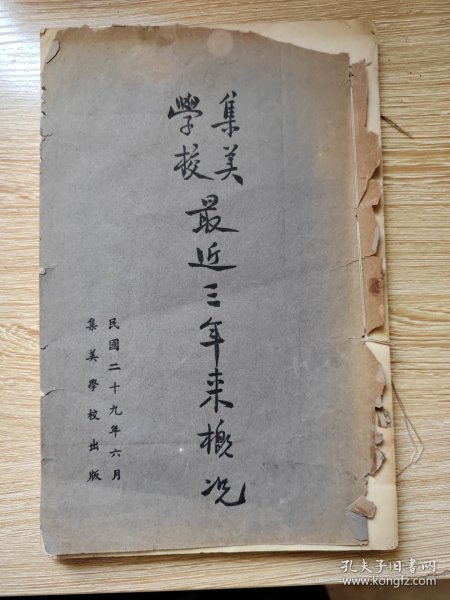 集美
學校
最近三年来概况
民國二十九年六月
集美學校出版
孔夫子旧书网
www.kongfz.com